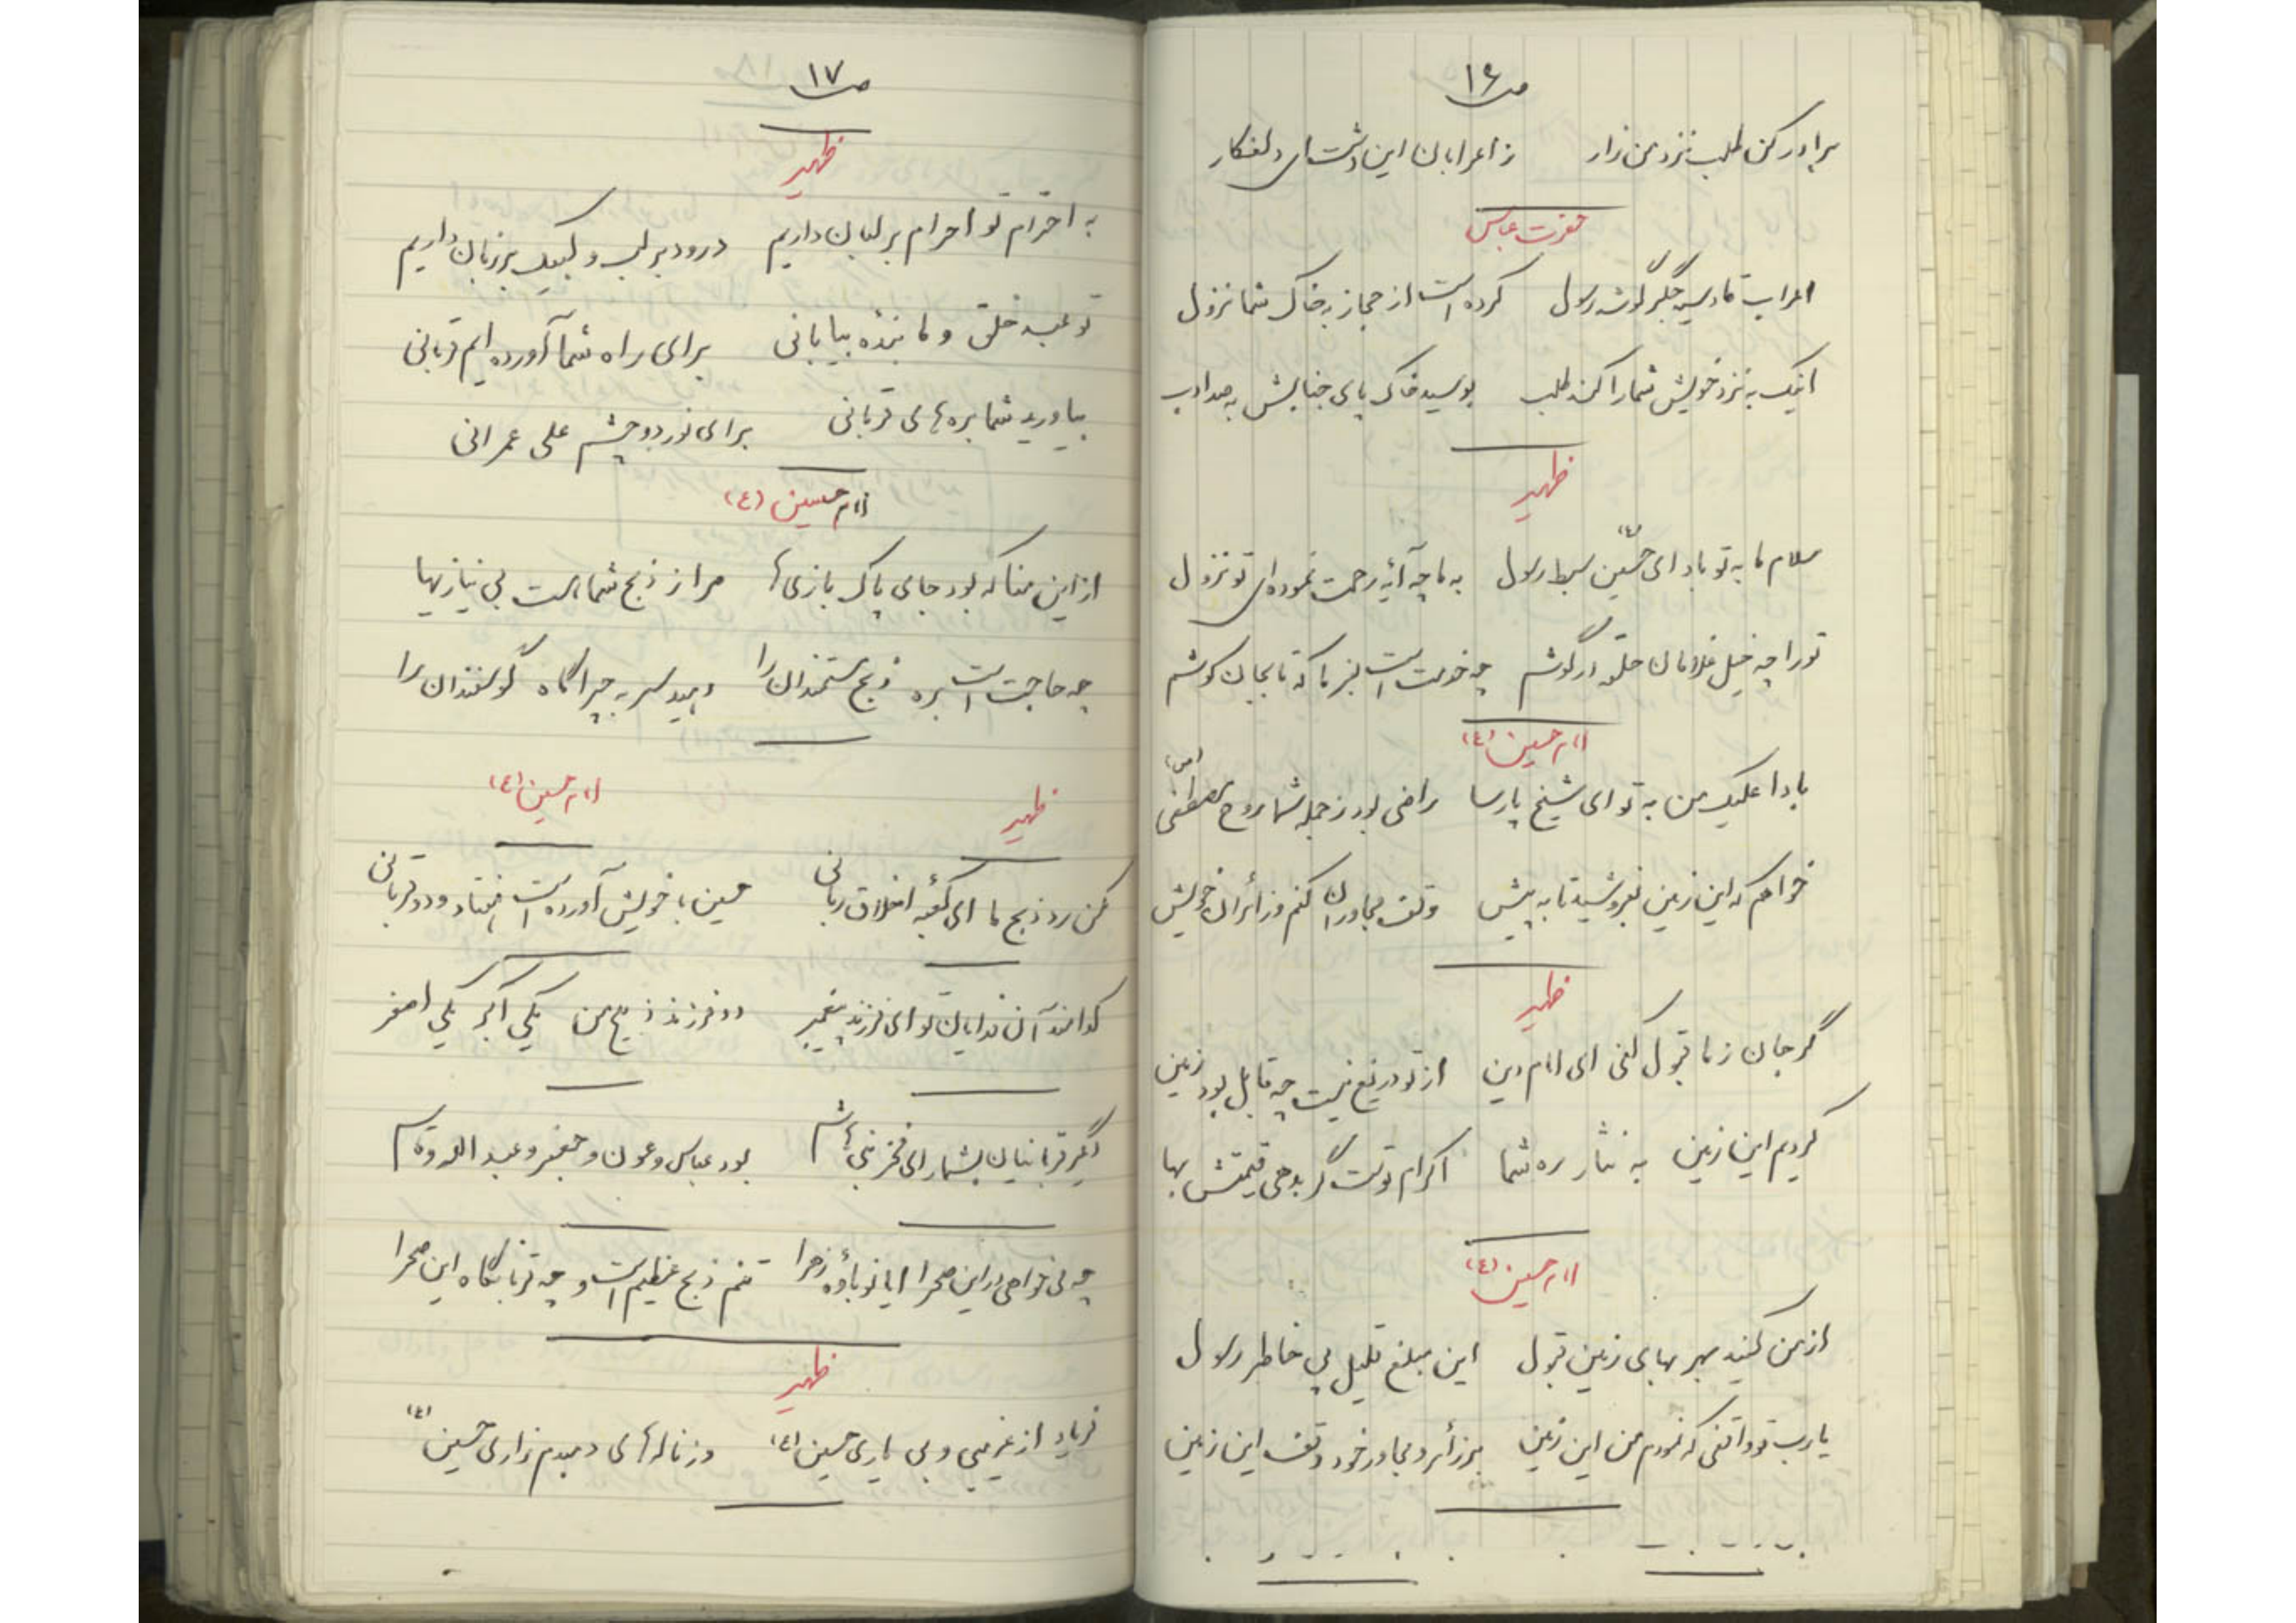 ص ۱۶
برادر کن طلب نزد من زار ز اعرابان این دشت ای دلفکار
حضرت عباس
اعراب قادسیه جگرگوشه رسول کرده است از حجاز به خاک شما نزول
اینک به نزد خویش شما را کند طلب بوسید خاک پای جنابش به صد ادب
ظهیر
سلام ما به تو باد ای حسین (ع) سبط رسول به ما چه آیه رحمت نموده ای تو نزول
تو را چه خیل غلامان حلقه در گوشم چه خدمت است بفرما که تا بجان کوشم
امام حسین (ع)
بادا علیک من به تو ای شیخ پارسا راضی بود ز جمله شما روح مصطفی (ص)
خواهم که این زمین بفروشید تا به پیش وقف مجاوران کنم و زائران خویش
ظهیر
گر جان ز ما قبول کنی ای امام دین از تو دریغ نیست چه قابل بود زمین
کردیم این زمین به نثار ره شما اکرام توست گر بدهی قیمتش بها
امام حسین (ع)
از من کنید بهر بهای زمین قبول این مبلغ قلیل پی خاطر رسول
یا رب تو واقفی که نمودم من این زمین بر زائر و مجاور خود وقف این زمین
ص ۱۷
ظهیر
به احترام تو احرام بر لبان داریم درود بر لب و لبیک بر زبان داریم
تو عید خلق و ما بنده بیابانی برای راه شما آورده ایم قربانی
بیاورید شما بره های قربانی برای نور دو چشم علی عمرانی
امام حسین (ع)
از این منا که بود جای پاک بازی ها مرا ز ذبح شما هست بی نیازیها
چه حاجت است بره ذبح مستمندان را دهید سر به چراگاه گوسفندان را
ظهیر امام حسین (ع)
مکن رد ذبح ما ای کعبه اخلاق ربانی حسین با خویش آورده است هفتاد و دو قربانی
کدامند آن فدایان تو ای فرزند پیغمبر دو فرزند ذبیح من یکی اکبر یکی اصغر
دگر قربانیان بشمار ای فخر بنی هاشم بود عباس و عون و جعفر و عبدالله و قاسم
چه می خواهی در این صحرا ایا نوباوهٔ زهرا تنم ذبح عظیم است و چه قربانگاه این صحرا
ظهیر
فریاد از غریبی و بی یاری حسین (ع) وز ناله های دمبدم زاری حسین (ع)